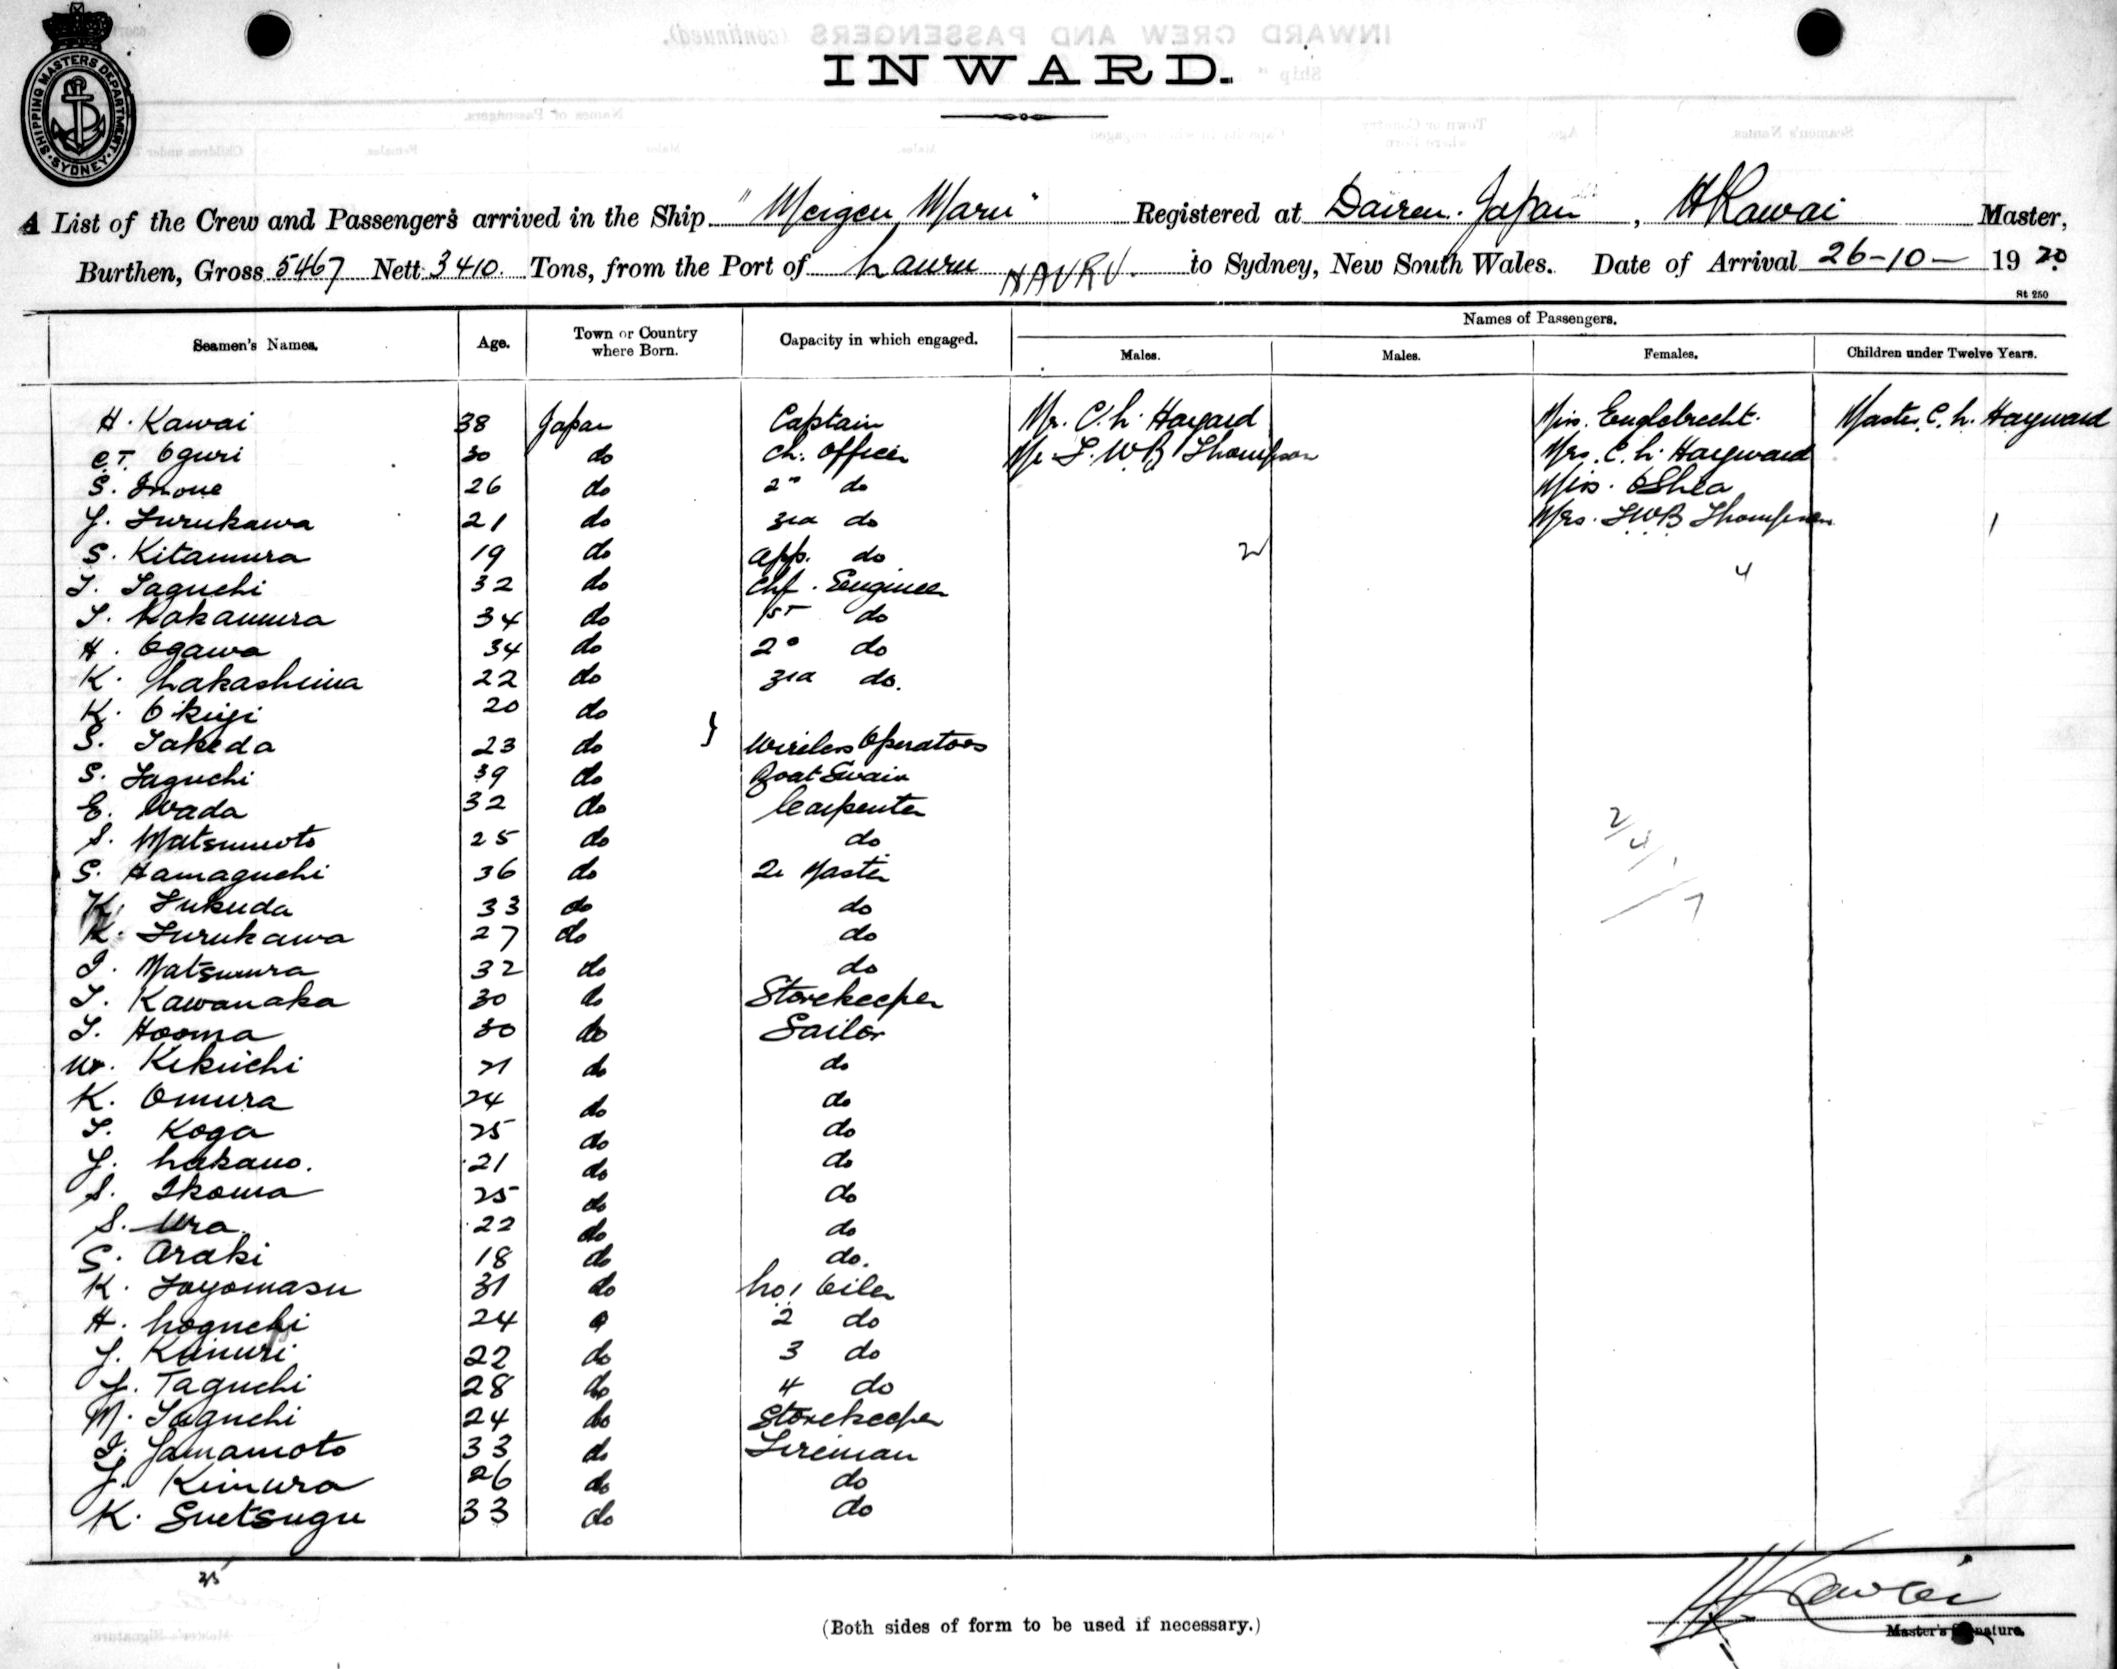 SHIPPING MASTERS DEPARTMENT. SYDNEY.
INWARD.
A List of the Crew and Passengers arrived in the Ship "Meigen Maru" Registered at Dairen. Japan, H Kawai Master,
Burthen, Gross 5467 Nett 3410. Tons, from the Port of Nauru NAURU. to Sydney, New South Wales. Date of Arrival 26-10- 1920
St 250
Seamen's Names. Age. Town or Country where Born. Capacity in which engaged. Names of Passengers.
Males. Males. Females. Children under Twelve Years.
H. Kawai 38 Japan Captain Mr. C. h. Hayard Miss. Englebrecht. Master. C. h. Hayward
C.T. Oguri 30 do Ch. Officer Mr. L. W. B Thompson Mrs. C. h. Hayward
S. Inoue 26 do 2nd do Miss. OShea
Y. Furukawa 21 do 3rd do Mrs. LWB Thompson 1
S. Kitamura 19 do App. do 2
T. Taguchi 32 do Chf. Engineer 4
T. Nakamura 34 do 1st do
H. Ogawa 34 do 2o do
K. Nakashima 22 do 3rd do.
K. Okugi 20 do
S. Takeda 23 do } Wireless Operators
S. Taguchi 39 do Boat Swain
E. Wada 32 do Carpenter
S. Matsumoto 25 do do
S. Hamaguchi 36 do Qr Master
K. Fukuda 33 do do
K. Furukawa 27 do do
I. Matsumura 32 do do
T. Kawanaka 30 do Storekeeper
T. Hooma 30 do Sailor
W. Kikuchi 21 do do
K. Omura 24 do do
T. Koga 25 do do
Y. Nakano. 21 do do
S. Ikoma 25 do do
S. Ura 22 do do
S. Araki 18 do do.
K. Toyomasu 31 do No 1 Oiler
H. Noguchi 24 do 2 do
Y. Kimuri 22 do 3 do
Y. Taguchi 28 do 4 do
M. Taguchi 24 do Storekeeper
I. Yamamoto 33 do Fireman
Y. Kimura 26 do do
K. Suetsugu 33 do do
2/4/1/7
35
H Kawai
(Both sides of form to be used if necessary.)
Master's Signature.